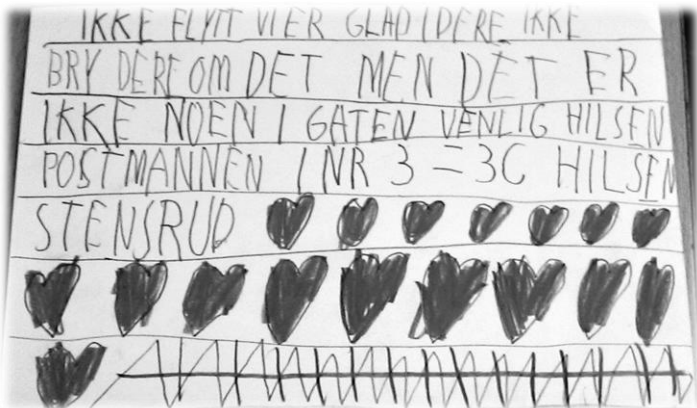 IKKE FLYTT VI ER GLAD I DERE IKKE
BRY DERE OM DET MEN DET ER
IKKE NOEN I GATEN VENLIG HILSEN
POSTMANNEN I NR 3 = 3C HILSEN
STENSRUD